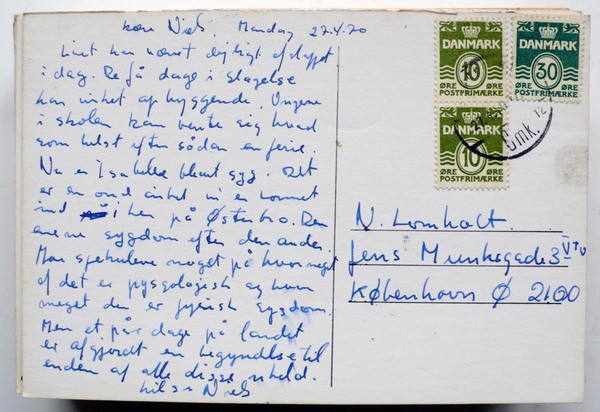 kære Niels. Mandag 27.4.70
Livet har været dejligt afslappet
i dag. De få dage i Slagelse
har virket opbyggende. Ungerne
i skolen kan vente sig hvad
som helst efter sådan en ferie.
Nu er Isabelle blevet syg. Det
er en ond cirkel vi er kommet
ind i her på Østerbro. Den
ene sygdom efter den anden.
Man spekulerer noget på hvor meget
af det er psygologisk og hvor
meget der er fysisk sygdom.
Men et par dage på landet
er afgjordt en begyndelse til
enden af alle disse uheld.
Hilsen Niels
DANMARK
10
ØRE ØRE
POSTFRIMÆRKE
DANMARK
30
ØRE ØRE
POSTFRIMÆRKE
DANMARK
10
ØRE ØRE
POSTFRIMÆRKE
Omk. 12
N. Lomholt.
Jens Munksgade 3
København Ø 2100